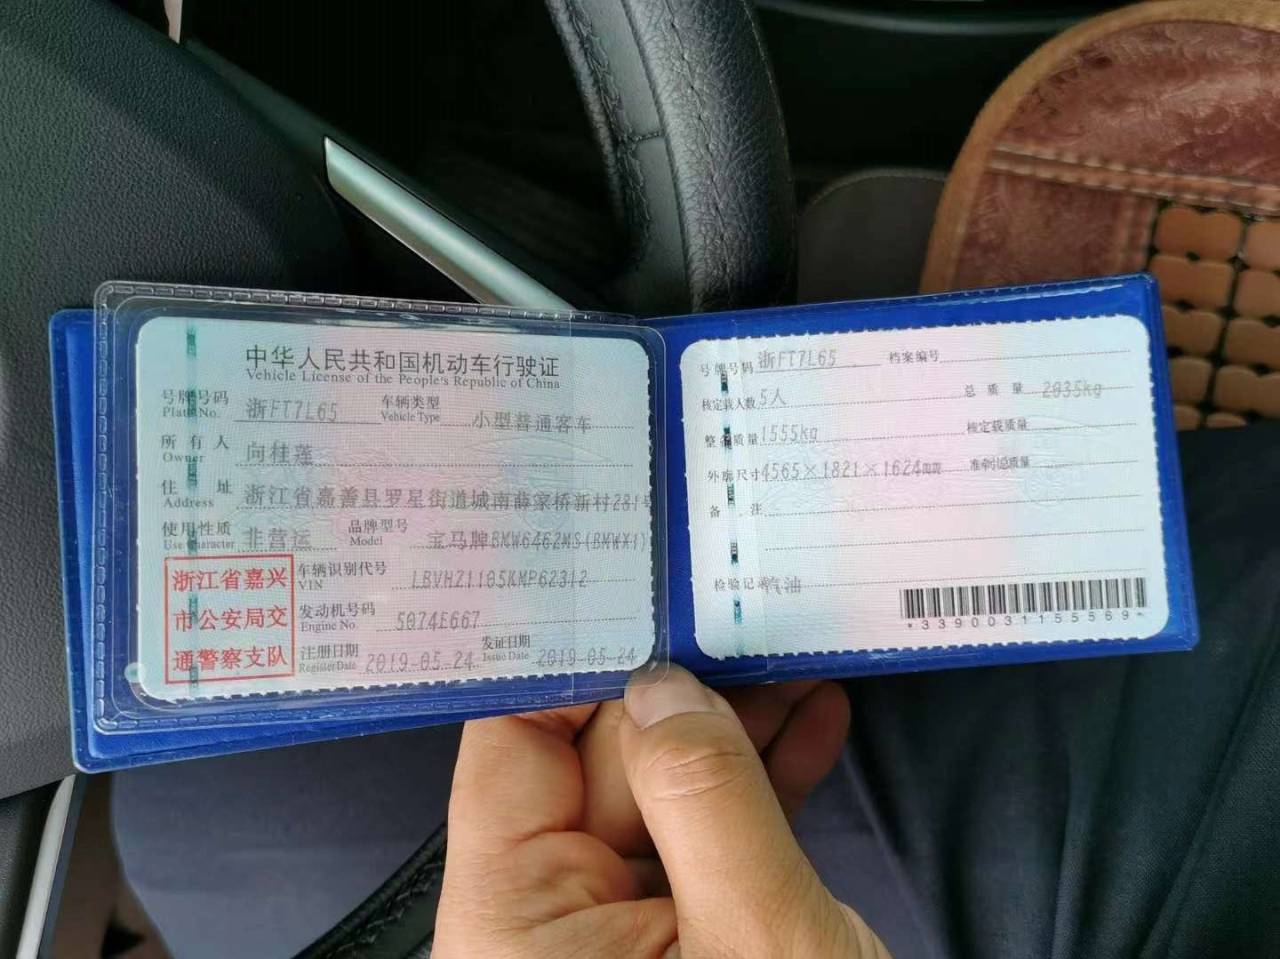 中华人民共和国机动车行驶证
Vehicle License of the People's Republic of China
号牌号码 浙FT7L65 车辆类型 小型普通客车
Plate No. Vehicle Type
所有人 向桂莲
Owner
住址 浙江省嘉善县罗星街道城南薛家桥新村281号
Address
使用性质 非营运 品牌型号 宝马牌BMW6462MS(BMWX1)
Use Character Model
浙江省嘉兴
市公安局交
通警察支队
车辆识别代号 LBVHZ1105KMP62312
VIN
发动机号码 5074E667
Engine No.
注册日期 2019-05-24 发证日期 2019-05-24
Register Date Issue Date
号牌号码 浙FT7L65 档案编号
核定载人数 5人 总质量 2035kg
整备质量 1555kg 核定载质量
外廓尺寸 4565×1821×1624mm 准牵引总质量
备注
检验记录 汽油
*3390031155569*